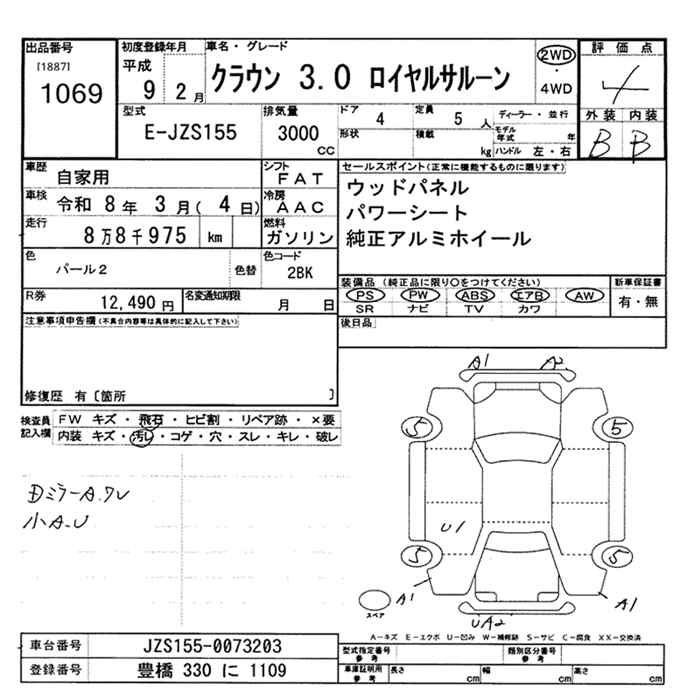 出品番号
[1887]
1069
初度登録年月
平成
9 2月
車名・グレード
クラウン 3.0 ロイヤルサルーン
2WD
・
4WD
評価点
4
外装 内装
B B
型式
E-JZS155
排気量
3000
CC
ドア
4
定員
5 人
形状
積載
kg
ディーラー・並行
モデル年式 年
ハンドル 左・右
車歴
自家用
シフト
FAT
車検
令和 8年 3月( 4日)
冷房
AAC
走行
8万8千975 km
燃料
ガソリン
色
パール2
色替
色コード
2BK
R券
12,490円
名変通知期限
月 日
セールスポイント(正常に機能するものに限ります)
ウッドパネル
パワーシート
純正アルミホイール
装備品(純正品に限り○をつけてください)
PS PW ABS エアB AW
SR ナビ TV カワ
新車保証書
有・無
後日品
注意事項申告欄(不具合内容等は具体的に記入して下さい)
修復歴 有〔箇所 〕
検査員
記入欄
FW キズ・飛石・ヒビ割・リペア跡・×要
内装 キズ・汚レ・コゲ・穴・スレ・キレ・破レ
ミラーA.ワレ
小A.U
A1 A2
5 5
U1
5 5
A1 A1
スペア
UA2
A-キズ E-エクボ U-凹み W-補修跡 S-サビ C-腐食 XX-交換済
車台番号
JZS155-0073203
登録番号
豊橋 330 に 1109
型式指定番号
参考
類別区分番号
参考
車庫証明用
参考
長さ cm
幅 cm
高さ cm